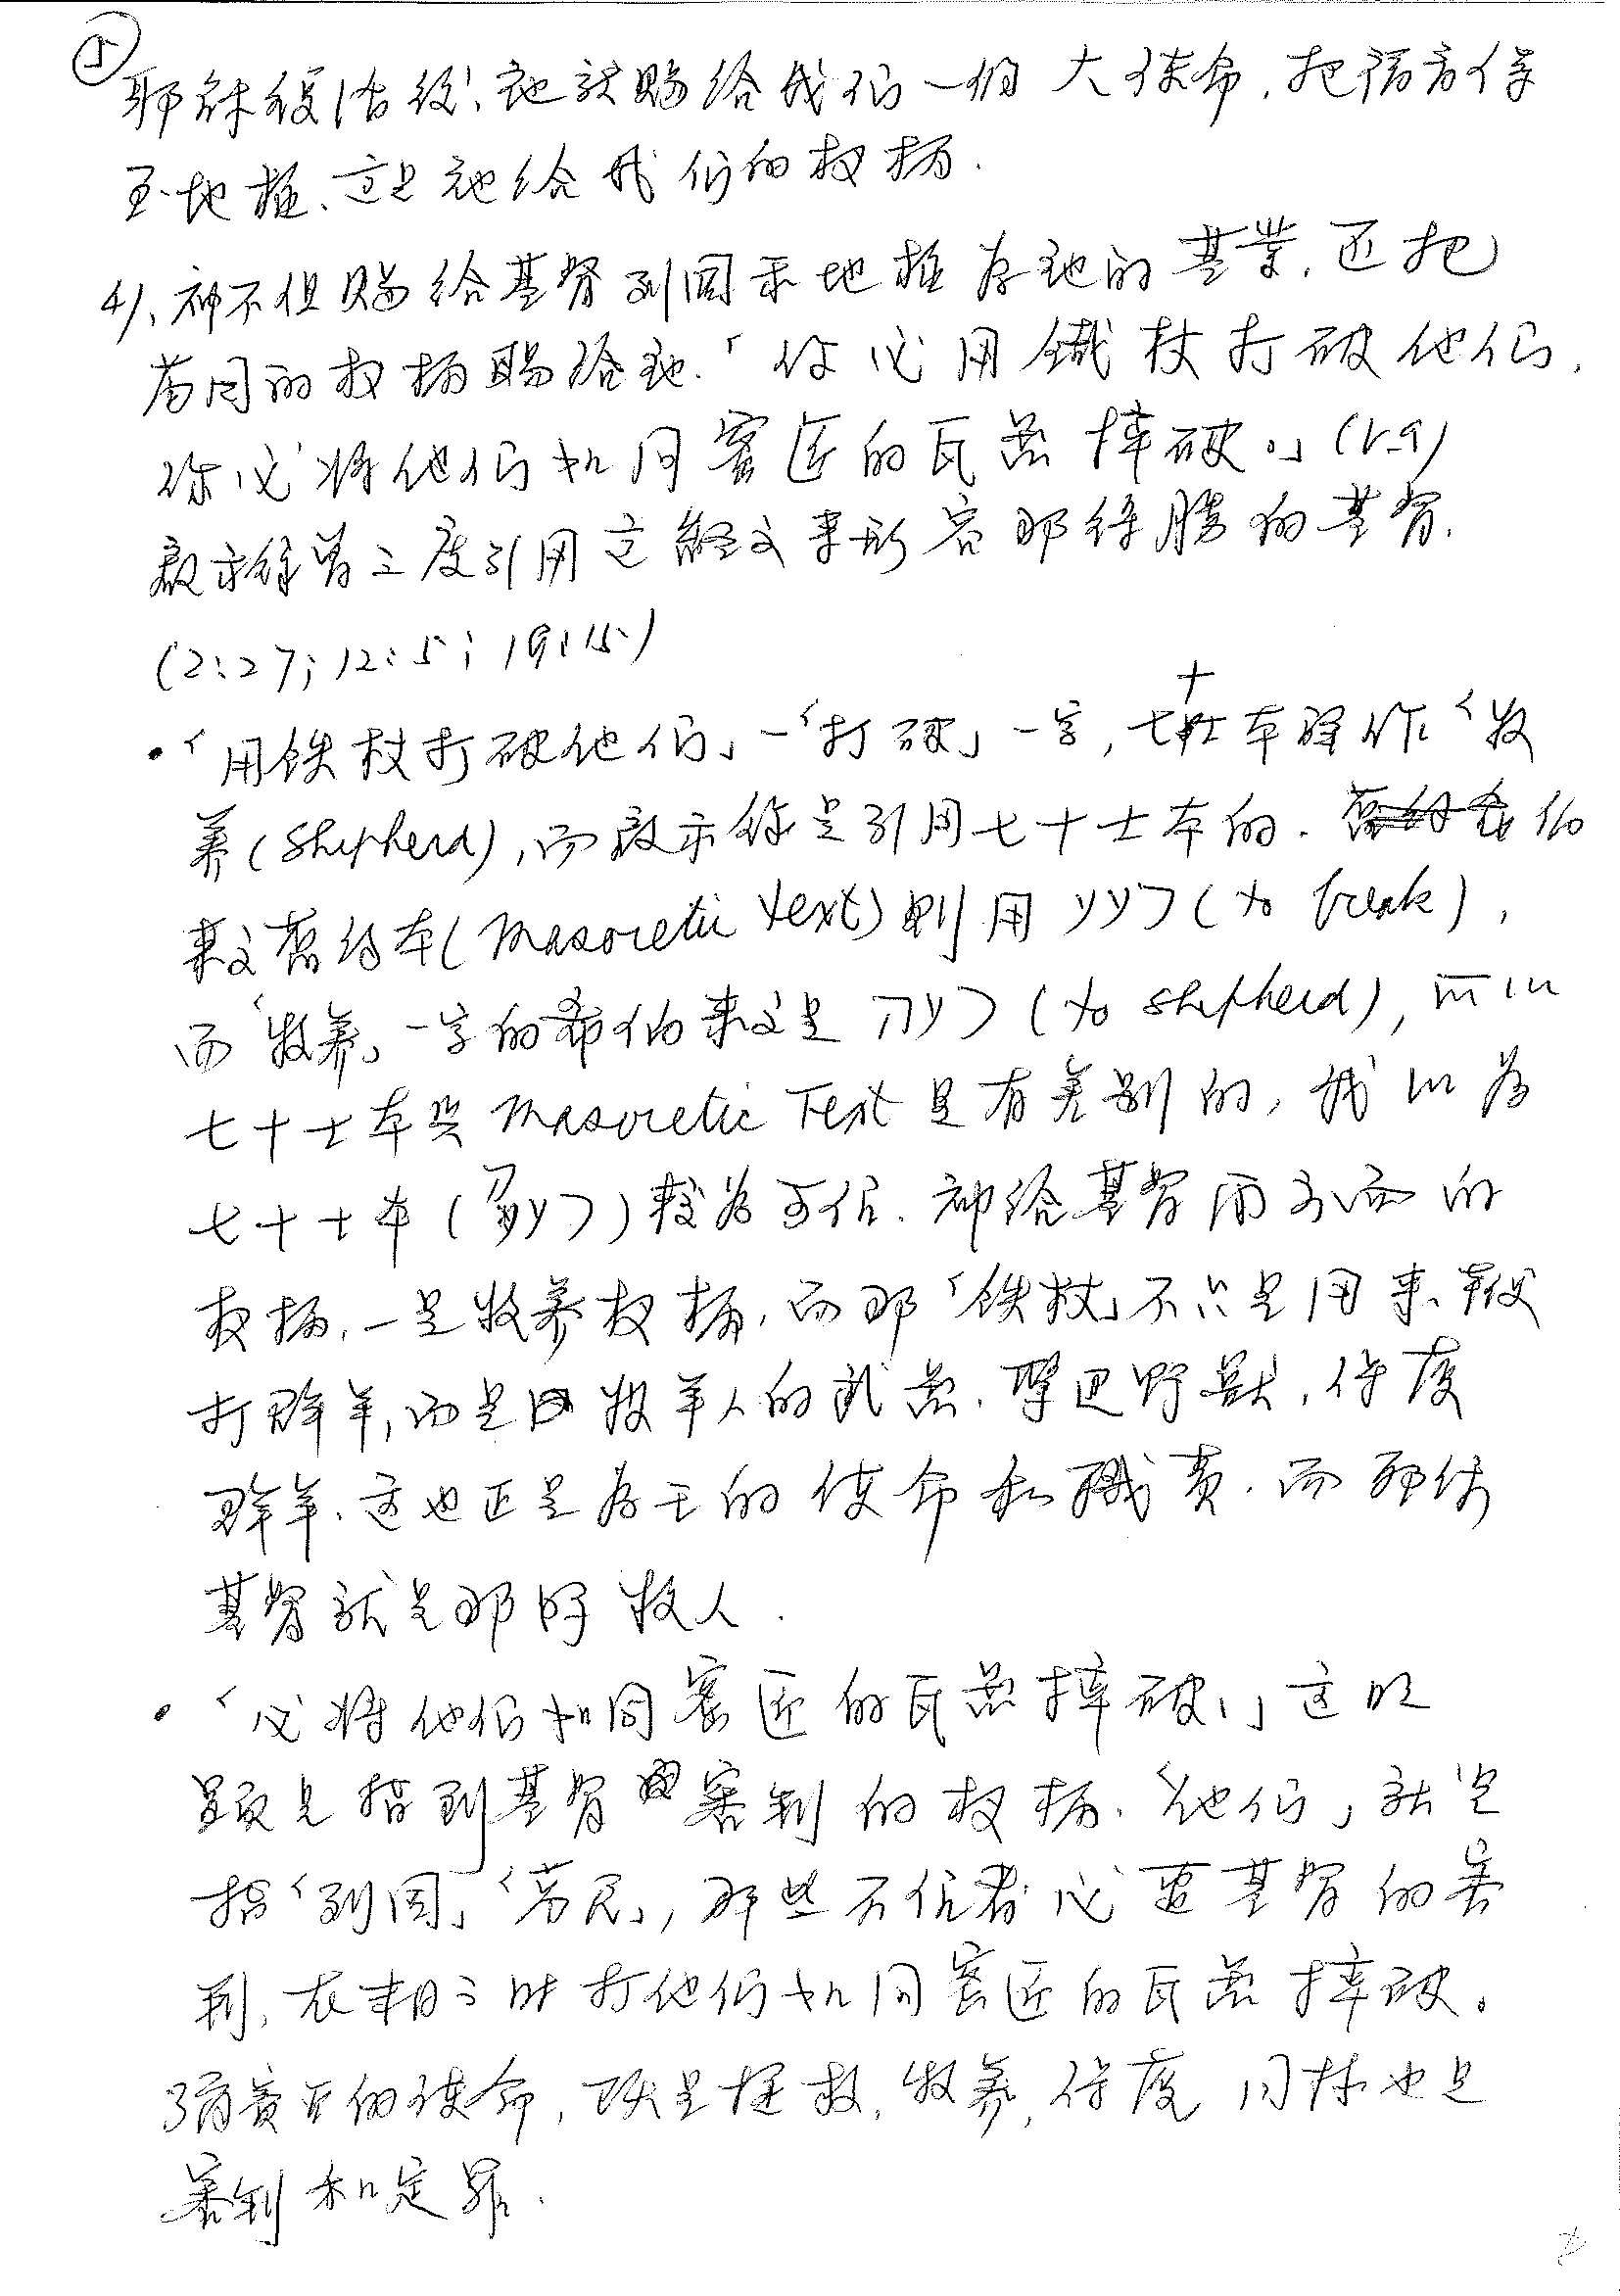 ⑤
耶稣復活後、祂就賜给我们一個大使命,把福音傳
至地極、这是祂给我们的权柄.
4)、神不但賜给基督列国和地極为祂的基業,还把
苗同的权柄賜给祂.「你必用鐵杖打破他们,
你必将他们如同窰匠的瓦器摔破。」(v.9)
啟示錄曾三度引用这經文来形容那得勝的基督.
(2:27; 12:5; 19:15)
•「用铁杖打破他们」一「打破」一字,七十士本译作「牧
养(shepherd),而啟示錄是引用七十士本的.希伯
来文舊约本(Masoretic text)則用 רעע (to break),
而「牧养」一字的希伯来文是 רעה (to shepherd),所以
七十士本與 Masoretic Text 是有差别的,我以为
七十士本(רעה)較为可信.神给基督兩方面的
权柄,一是牧养权柄,而那「铁杖」不只是用来鞭
打群羊,而是牧羊人的武器,擊退野獸,保護
群羊.这也正是为王的使命和職责.而耶稣
基督就是那好牧人.
•「必将他们如同窰匠的瓦器摔破。」这明
顯是指到基督審判的权柄.「他们」就是
指「列国」「万民」,那些不信者必遭基督的審
判,在末日之时打他们如同窰匠的瓦器摔破。
彌賽亞的使命,既是拯救,牧养,保護 同样也是
審判和定罪.